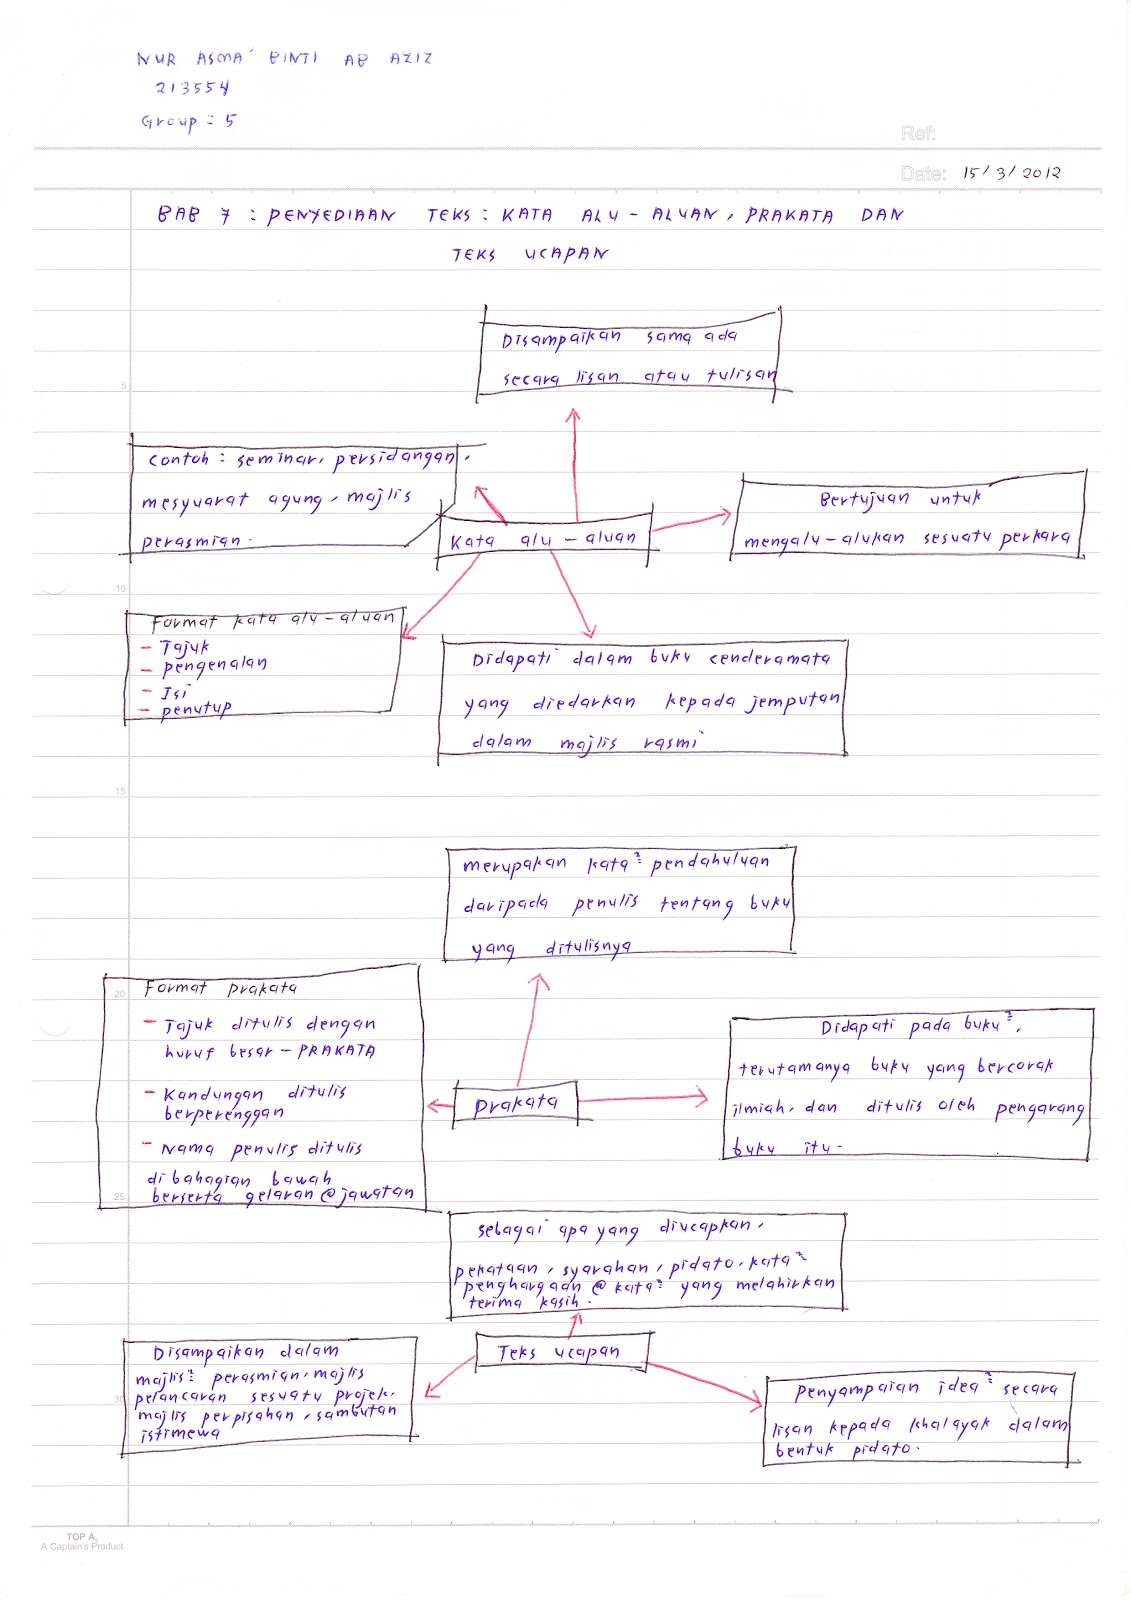 NUR ASMA' BINTI AB AZIZ
213554
Group : 5
Ref:
Date: 15/3/2012
BAB 7 : PENYEDIAAN TEKS : KATA ALU - ALUAN, PRAKATA DAN
TEKS UCAPAN
Disampaikan sama ada
secara lisan atau tulisan
Contoh : seminar, persidangan,
mesyuarat agung, majlis
perasmian.
Bertujuan untuk
mengalu-alukan sesuatu perkara
Kata alu - aluan
Format kata alu-aluan
- Tajuk
- pengenalan
- Isi
- penutup
Didapati dalam buku cenderamata
yang diedarkan kepada jemputan
dalam majlis rasmi
merupakan kata² pendahuluan
daripada penulis tentang buku
yang ditulisnya
Format prakata
- Tajuk ditulis dengan
huruf besar - PRAKATA
- Kandungan ditulis
berperenggan
- Nama penulis ditulis
dibahagian bawah
berserta gelaran @ jawatan
Prakata
Didapati pada buku²,
terutamanya buku yang bercorak
ilmiah, dan ditulis oleh pengarang
buku itu.
sebagai apa yang diucapkan,
pekataan, syarahan, pidato, kata²
penghargaan @ kata² yang melahirkan
terima kasih.
Teks ucapan
Disampaikan dalam
majlis² perasmian, majlis
pelancaran sesuatu projek,
majlis perpisahan, sambutan
istimewa
Penyampaian idea² secara
lisan kepada khalayak dalam
bentuk pidato.
5
10
15
20
25
30
TOP A,
A Captain's Product